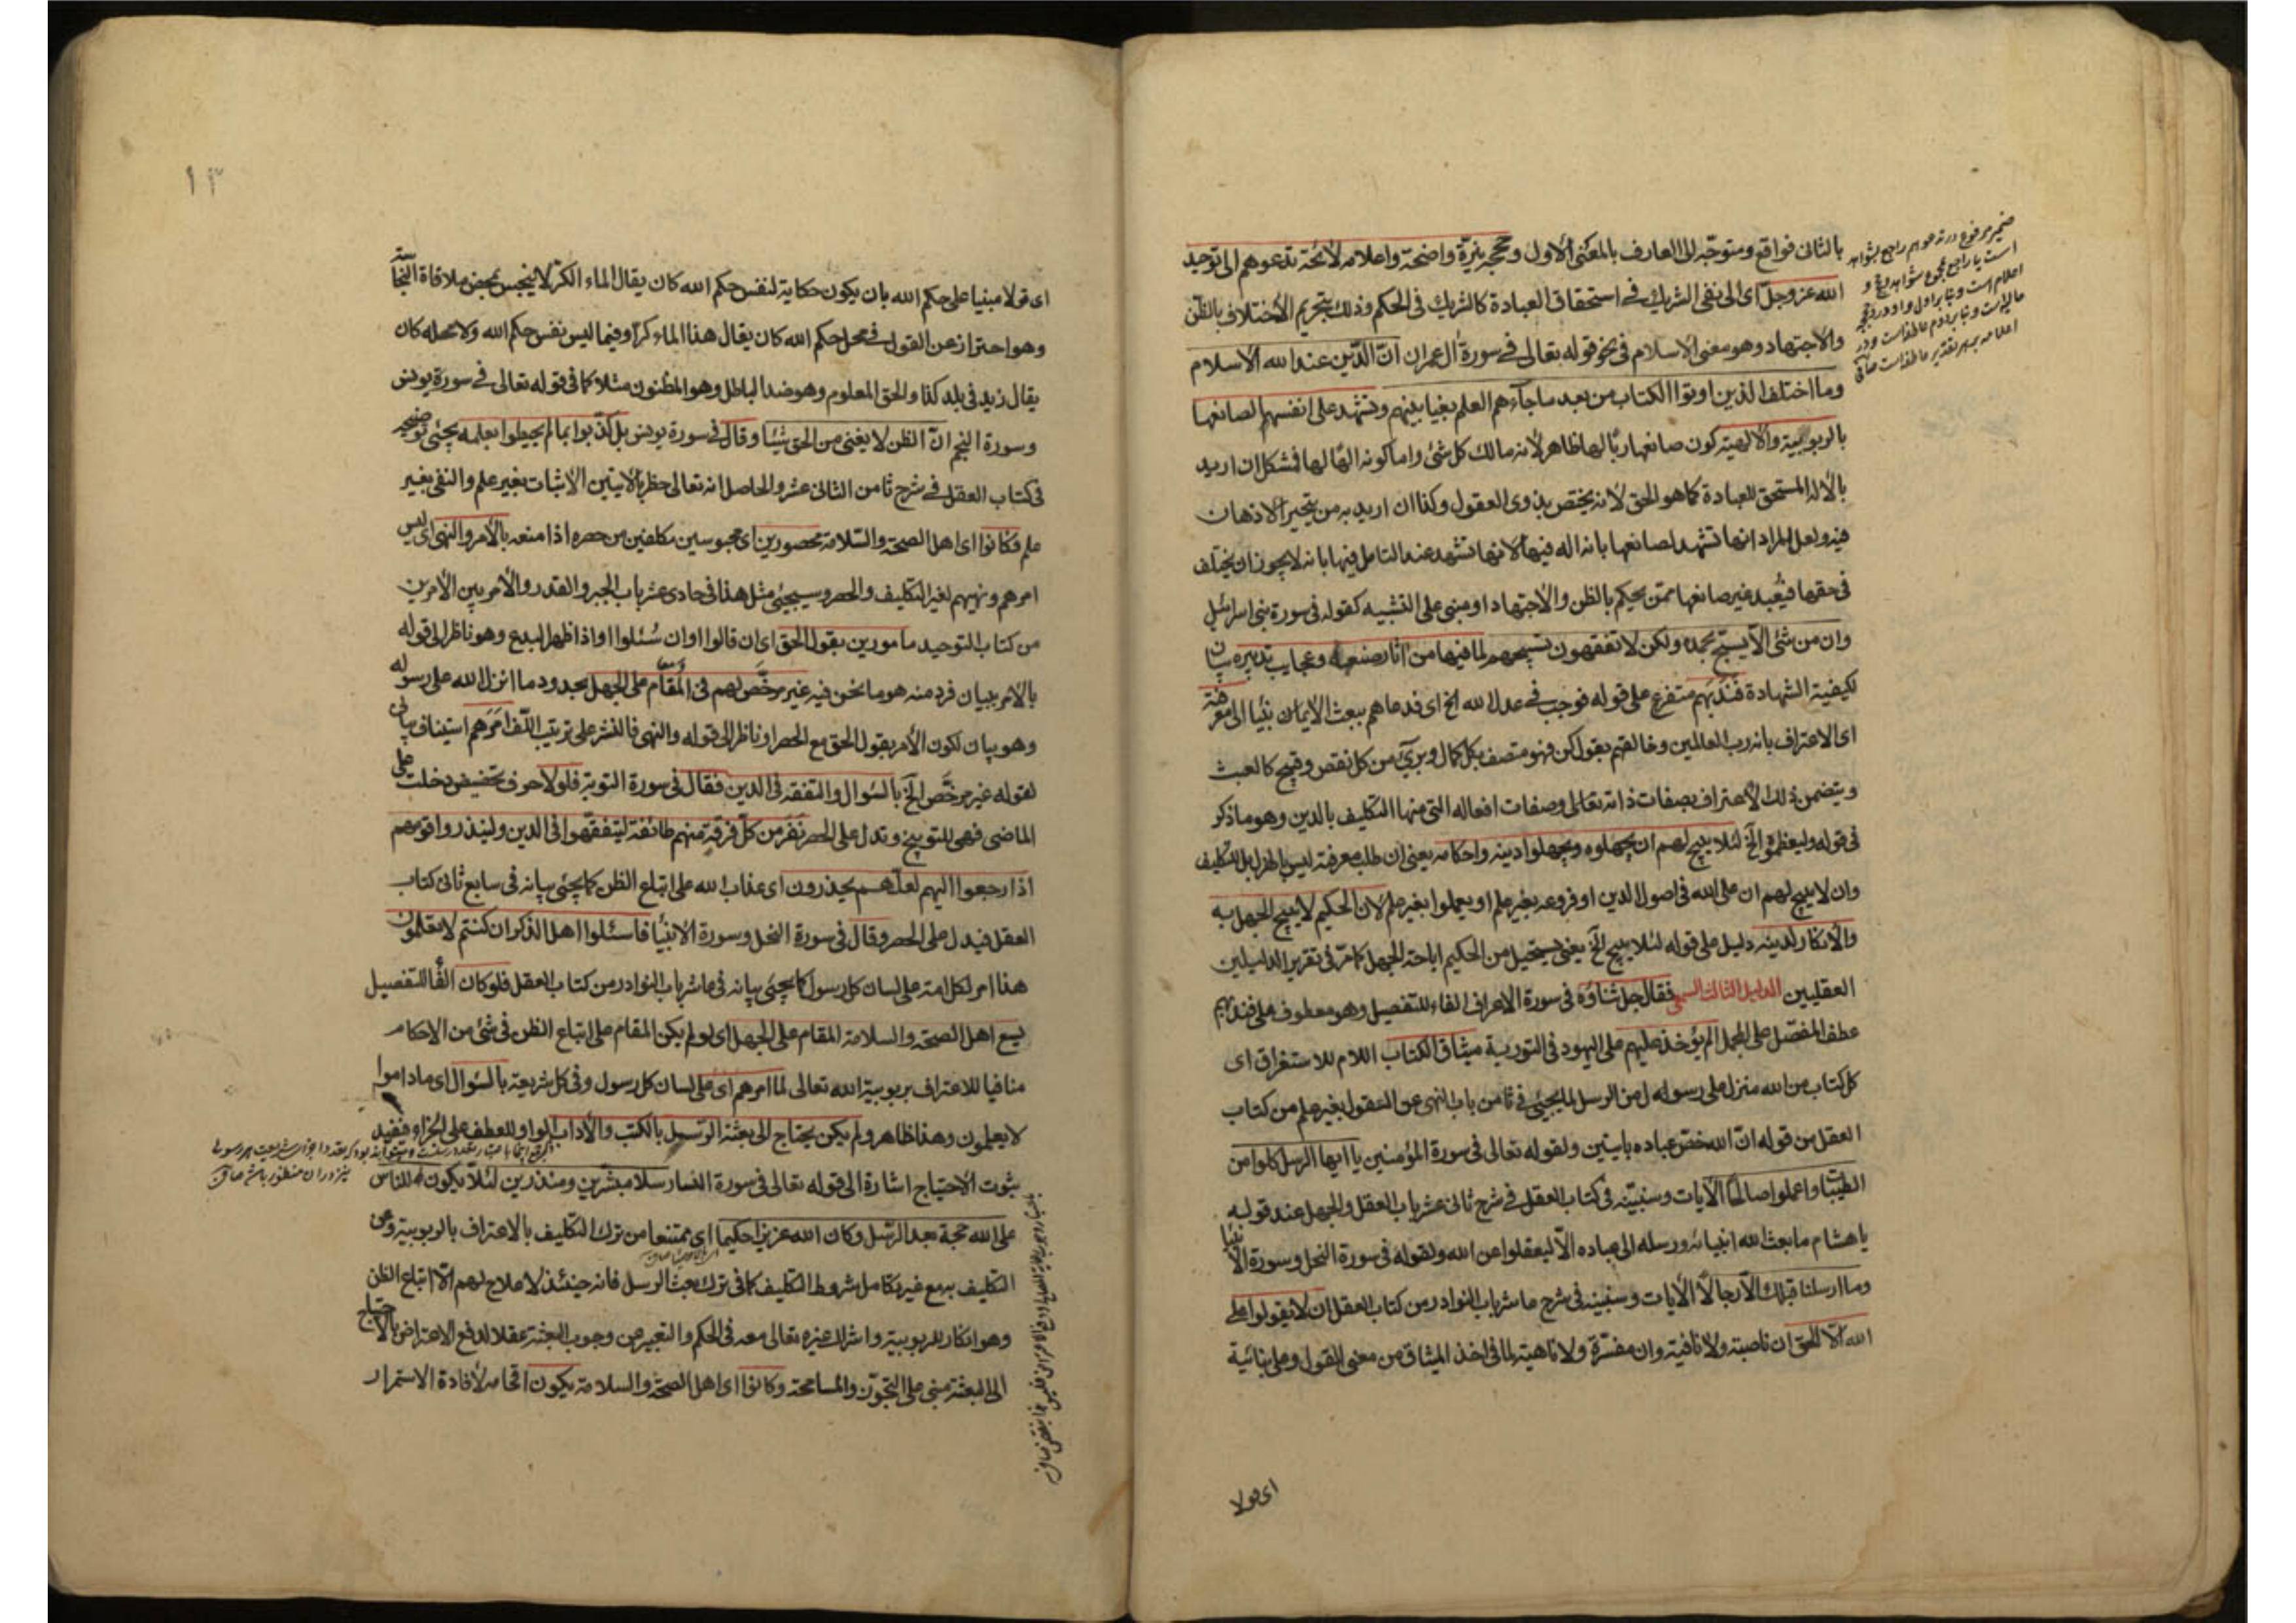 بالثانی فواقع ومتوجّه الی العارف بالمعنی الاول وحججه نیّرة واضحة واعلامه لائحة تدعوهم الی توحید
الله عز وجلّ ای الی نفی الشریك فی استحقاق العبادة کالشریك فی الحکم وذلك بتحریم الاختلاف بالظن
والاجتهاد وهو معنی الاسلام فی نحو قوله تعالی فی سورة آل عمران انّ الدّین عند الله الاسلام
وما اختلف الذین اوتوا الکتاب من بعد ما جاءهم العلم بغیا بینهم وتشهد علی انفسهم لصانعها
بالربوبیة والالهیة کون صانعها ربّا لها ظاهر لانه مالك کل شئ واما کونه الهًا لها فشکل ان ارید
بالاله المستحق للعبادة کما هو الحق لانه یختص بذوی العقول وکذا ان ارید به من یتحیر الاذهان
فیه ولعل المراد انها تشهد لصانعها بانه اله فیها لانها تشهد عند التامل فیها بانه لا یجوز ان یختلف
فی حقها فیُعبد غیر صانعها ممّن یحکم بالظن والاجتهاد او مبنی علی التشبیه کقوله فی سورة بنی اسرائیل
وان من شئ الّا یسبّح بحمده ولکن لا تفقهون تسبیحهم لما فیها من آثار صنعه وعجایب تدبیره بیان
لکیفیة الشهادة فندبهم متفرع علی قوله فوجب فی عدل الله الخ ای فدعاهم ببعث الانبیاء الی معرفته
ای الاعتراف بانه رب العالمین وخالقهم بقول کن فهو متصف بکل کمال وبریّ من کل نقص وقبیح کالعبث
ویتضمن ذلك الاعتراف بصفات ذاته تعالی وصفات افعاله التی منها التکلیف بالدین وهو ما ذکر
فی قوله ولیعظموه الخ لئلا یبیح لهم ان یجهلوه ویجهلوا دینه واحکامه یعنی ان طلب معرفته لیس بالهزل بل للتکلیف
وان لا یبیح لهم ان علی الله فی اصول الدین او فروعه بغیر علم او یعملوا بغیر علم لان الحکیم لا یبیح الجهل به
والانکار لدینه دلیل علی قوله لئلا یبیح الخ یعنی یستحیل من الحکیم اباحة الجهل کما مرّ فی تقریر الدلیلین
العقلیین الدلیل الثالث السمعی فقال جل ثناؤه فی سورة الاعراف الفاء للتفصیل وهو معطوف علی فندبهم
عطف المفصّل علی المجمل الم یؤخذ علیهم علی الیهود فی التوریة میثاق الکتاب اللام للاستغراق ای
کل کتاب من الله منزل علی رسوله من الرسل لما یجیئ فی ثامن باب النهی عن القول بغیر علم من کتاب
العقل من قوله انّ الله خصّ عباده بایتین ولقوله تعالی فی سورة المؤمنین یا ایها الرسل کلوا من
الطیبات واعملوا صالحًا الآیات وسنبیّنه فی کتاب العقل فی شرح ثانی عشر باب العقل والجهل عند قوله
یا هشام ما بعث الله انبیائه ورسله الی عباده الّا لیعقلوا عن الله ولقوله فی سورة النحل وسورة الانبیا
وما ارسلنا قبلك الّا رجالًا الآیات وسنبینه فی شرح عاشر باب النوادر من کتاب العقل ان لا یقولوا علی
الله الّا الحق ان ناصبة ولا نافیة وان مفسّرة ولا ناهیة لما فی اخذ المیثاق من معنی القول وعلی بنائیة
ای قولا
ضمیر مرفوع در تدعوهم راجع بشواهد
است یا راجع بمجموع شواهد وحجج و
اعلام است وبنابر اول واو در وحججه
حالیه است وبنابر دوم عاطفه است ودر
اعلامه بهر تقدیر عاطفه است
۱۳
ای قولا مبنیا علی حکم الله بان یکون حکایة لنفس حکم الله کان یقال الماء الکرّ لا ینجس بمحض ملاقاة النجاسة
وهو احتراز عن القول فی محل حکم الله کان یقال هذا الماء کرّ او فیما لیس نفس حکم الله ولا محله کان
یقال زید فی بلد کذا والحق المعلوم وهو ضد الباطل وهو المظنون مثلا کما فی قوله تعالی فی سورة یونس
وسورة النجم انّ الظن لا یغنی من الحق شیئا وقال فی سورة یونس بل کذّبوا بما لم یحیطوا بعلمه یجیئ توضیحه
فی کتاب العقل فی شرح ثامن الثانی عشر والحاصل انه تعالی حظر بالآیتین الاثبات بغیر علم والنفی بغیر
علم فکانوا ای اهل الصحة والسّلامة محصورین ای محبوسین مکلفین من حصره اذا منعه بالامر والنهی ای لیس
امرهم ونهیهم لغیر التکلیف والحصر وسیجیئ مثل هذا فی حادی عشر باب الجبر والقدر والامر بین الامرین
من کتاب التوحید مامورین بقول الحق ای ان قالوا او ان سُئلوا او اذا ظهر البدع وهو ناظر الی قوله
بالامر ببیان فرد منه هو ما نحن فیه غیر مرخَّص لهم فی المُقام علی الجهل بحدود ما انزل الله علی رسوله
وهو بیان لکون الامر بقول الحق مع الحصر او ناظر الی قوله والنهی فالنشر علی ترتیب اللّف امرهم استیناف بیانی
لقوله غیر مرخَّص الخ بالسّؤال والتفقه فی الدین فقال فی سورة التوبة فلولا حرف تحضیض دخلت علی
الماضی فهی للتوبیخ وتدل علی الحصر نَفَر من کلّ فرقة منهم طائفة لیتفقّهوا فی الدین ولینذروا قومهم
اذا رجعوا الیهم لعلّهم یحذرون ای عذاب الله علی اتباع الظن کما یجیئ بیانه فی سابع ثانی کتاب
العقل فیدل علی الحصر وقال فی سورة النحل وسورة الانبیا فاسئلوا اهل الذکر ان کنتم لا تعلمون
هذا امر لکل امة علی لسان کل رسول کما یجیئ بیانه فی عاشر باب النوادر من کتاب العقل فلو کان الفا للتفصیل
یسع اهل الصحة والسلامة المقام علی الجهل ای لو لم یکن المقام علی اتباع الظن فی شئ من الاحکام
منافیا للاعتراف بربوبیة الله تعالی لما امرهم ای علی لسان کل رسول وفی کل شریعة بالسّؤال ای ما داموا
لا یعلمون وهذا ظاهر ولم یکن یحتاج الی بعثة الرّسل بالکتب والآداب الواو للعطف علی الجزاء ففید
ثبوت الاحتیاج اشارة الی قوله تعالی فی سورة النساء رسلا مبشّرین ومنذرین لئلّا یکون للناس
علی الله حجة بعد الرّسل وکان الله عزیزا حکیما ای ممتنعا من ترك التکلیف بالاعتراف بالربوبیة وعن
التکلیف به مع غیر تکامل شروط التکلیف کما فی ترك بعث الرسل فانه حینئذ لا علاج لهم الّا اتباع الظن
وهو انکار للربوبیة واشراك غیره تعالی معه فی الحکم والتعبیر عن وجوب البعثة عقلا لدفع الاعتراض بالاحتیاج
الی البعثة مبنی علی التجوّز والمسامحة وکانوا ای اهل الصحّة والسلامة یکون اقحامه لافادة الاستمرار